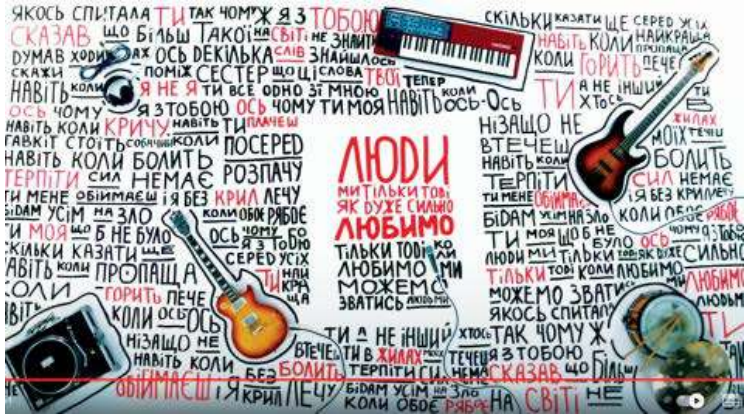 ЯКОСЬ СПИТАЛА ТИ ТАК ЧОМУ Ж Я З ТОБОЮ
СКАЗАВ ЩО БІЛЬШ ТАКОЇ НА СВІТІ НЕ ЗНАЙТИ
ДУМАВ ХОДИВ ОСЬ ДЕКІЛЬКА СЛІВ ЗНАЙШЛОСЬ
СКАЖИ ПОМІЖ СЕСТЕР ЩО ЦІ СЛОВА ТВОЇ ТЕПЕР
НАВІТЬ КОЛИ Я НЕ Я ТИ ВСЕ ОДНО ЗІ МНОЮ
ОСЬ ЧОМУ Я З ТОБОЮ ОСЬ ЧОМУ ТИ МОЯ НАВІТЬ КОЛИ ОСЬ-ОСЬ
НАВІТЬ КОЛИ КРИЧУ НАВІТЬ ТИ ПЛАЧЕШ
ГАВКІТ СТОЇТЬ СОБАЧИЙ КОЛИ ПОСЕРЕД
НАВІТЬ КОЛИ БОЛИТЬ РОЗПАЧУ
ТЕРПІТИ СИЛ НЕМАЄ
ТИ МЕНЕ ОБІЙМАЄШ І Я БЕЗ КРИЛ ЛЕЧУ
БІДАМ УСІМ НА ЗЛО КОЛИ ОБОЄ РЯБОЄ
ТИ МОЯ ЩО Б НЕ БУЛО ОСЬ ЧОМУ ГО Я З ТОБОЮ
СКІЛЬКИ КАЗАТИ ЩЕ СЕРЕД УСІХ
НАВІТЬ КОЛИ ПРОПАЩА ТИ НАЙКРАЩА
КОЛИ ГОРИТЬ ПЕЧЕ
КОЛИ ОСЬ-ОСЬ
НІЗАЩО НЕ ВТЕЧЕШ
НАВІТЬ КОЛИ БОЛИТЬ
ОБІЙМАЄШ І Я БЕЗ КРИЛ ЛЕЧУ
ЛЮДИ
МИ ТІЛЬКИ ТОБІ
ЯК ДУЖЕ СИЛЬНО
ЛЮБИМО
ТІЛЬКИ ТОДІ КОЛИ
ЛЮБИМО МИ
МОЖЕМО
ЗВАТИСЬ ЛЮДЬМИ
ТИ А НЕ ІНШИЙ ХТОСЬ
ТИ В ЖИЛАХ МОЇХ ТЕЧЕШ
ТЕРПІТИ СИЛ НЕМА
БІДАМ УСІМ НА ЗЛО
КОЛИ ОБОЄ РЯБОЄ
СКІЛЬКИ КАЗАТИ ЩЕ СЕРЕД УСІХ
НАВІТЬ КОЛИ НАЙКРАЩА
ПРОПАЩА
КОЛИ ГОРИТЬ ПЕЧЕ
ТИ А НЕ ІНШИЙ ХТОСЬ ТИ В
НІЗАЩО НЕ ЖИЛАХ
ВТЕЧЕШ МОЇХ ТЕЧЕШ
НАВІТЬ КОЛИ БОЛИТЬ
ТЕРПІТИ СИЛ НЕМАЄ
ТИ МЕНЕ ОБІЙМАЄШ І Я БЕЗ КРИЛ ЛЕЧУ
БІДАМ УСІМ НА ЗЛО КОЛИ ОБОЄ РЯБОЄ
ТИ МОЯ ЩО Б НЕ БУЛО ОСЬ ЧОМУ Я З ТОБОЮ
ЛЮДИ МИ ТІЛЬКИ ТОДІ ЯК ДУЖЕ СИЛЬНО
ТІЛЬКИ ТОДІ КОЛИ ЛЮБИМО ЛЮБИМО
МОЖЕМО ЗВАТИСЬ МИ ЛЮДЬМИ
ЯКОСЬ СПИТАЛА ТИ
ТАК ЧОМУ Ж
Я З ТОБОЮ
СКАЗАВ ЩО БІЛЬШ
НА СВІТІ НЕ